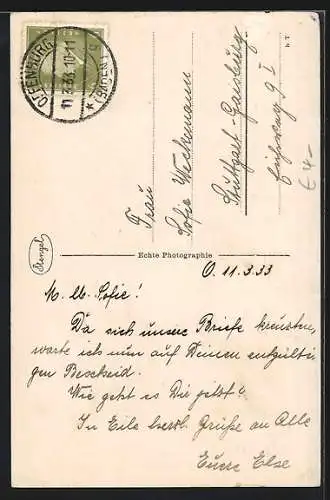 OFFENBURG
11.3.33.10-11
* (BADEN)
Frau
Sofie Weckemann
Stuttgart-Gaisburg
I
€ 4.-
h T
Stengel
Echte Photographie
O. 11.3.33
M. lb. Sofie!
Da sich unsere Briefe kreuzten,
warte ich nun auf Deinen entgülti
gen Bescheid.
Wie geht es Dir jetzt?
In Eile herzl. Grüße an Alle
Eure Else